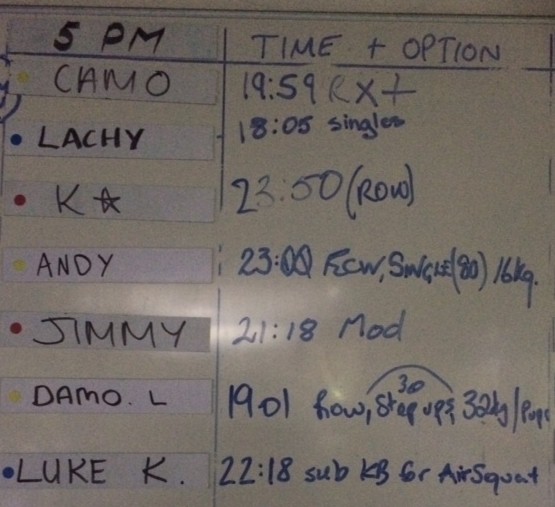 5 PM TIME + OPTION
CAMO 19:59 RX+
LACHY 18:05 singles
K☆ 23:50 (ROW)
ANDY 23:00 Row, SINGLE (80) 16kg.
JIMMY 21:18 Mod
30
DAMO. L 1901 Row, Step ups, 32kg /
LUKE K. 22:18 sub KB for AirSquat